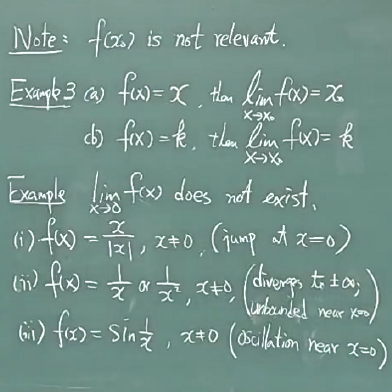 Note: f(x₀) is not relevant.
Example 3 (a) f(x) = x, then lim_{x→x₀} f(x) = x₀
(b) f(x) = k, then lim_{x→x₀} f(x) = k
Example lim_{x→0} f(x) does not exist.
(i) f(x) = x/|x|, x≠0, (jump at x=0)
(ii) f(x) = 1/x or 1/x², x≠0, (diverges to ±∞; unbounded near x=0)
(iii) f(x) = sin 1/x, x≠0 (oscillation near x=0)